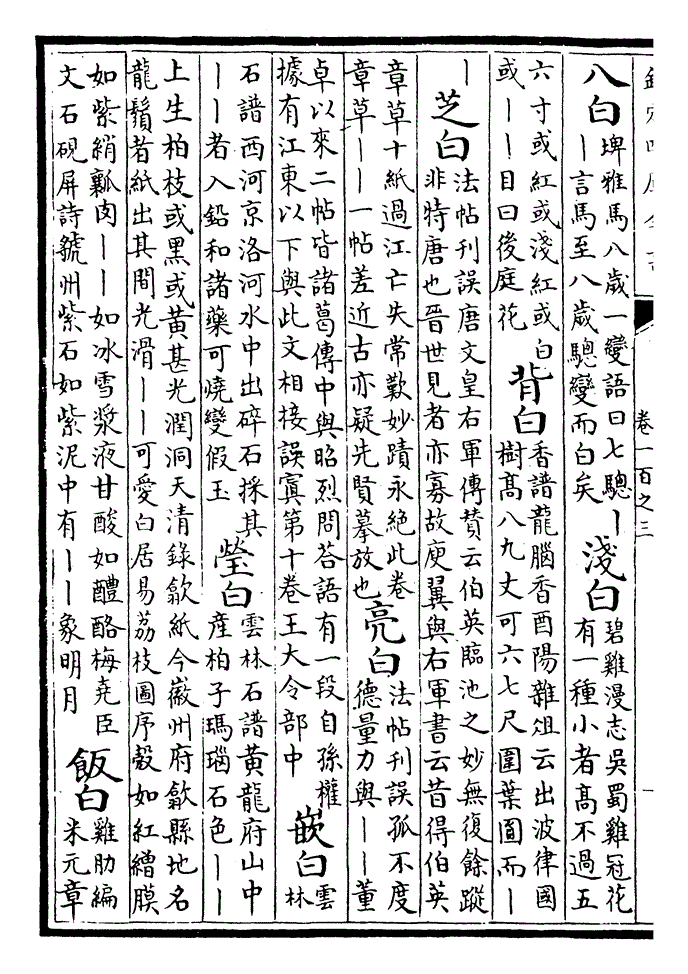 欽定四庫全書
卷一百之三
八白
埤雅馬八歲一變語曰七驄丨
丨言馬至八歲驄變而白矣
淺白
碧雞漫志吳蜀雞冠花
有一種小者高不過五
六寸或紅或淺紅或白
或丨丨目曰後庭花
背白
香譜龍腦香酉陽雜俎云出波律國
樹高八九丈可六七尺圍葉圓而丨
丨
芝白
法帖刊誤唐文皇右軍傳贊云伯英臨池之妙無復餘蹤
非特唐也晉世見者亦寡故庾翼與右軍書云昔得伯英
章草十紙過江亡失常歎妙蹟永絕此卷
章草丨丨一帖差近古亦疑先賢摹放也
亮白
法帖刊誤孤不度
德量力與丨丨董
卓以來二帖皆諸葛傳中與昭烈問荅語有一段自孫權
據有江東以下與此文相接誤寘第十卷王大令部中
嵌白
雲
林
石譜西河京洛河水中出碎石採其
丨丨者入鉛和諸藥可燒變假玉
瑩白
雲林石譜黃龍府山中
產柏子瑪瑙石色丨丨
上生柏枝或黑或黃甚光潤洞天清錄歙紙今徽州府歙縣地名
龍鬚者紙出其間光滑丨丨可愛白居易荔枝圖序殼如紅繒膜
如紫綃瓤肉丨丨如冰雪漿液甘酸如醴酪梅堯臣
文石硯屏詩虢州紫石如紫泥中有丨丨象明月
飯白
雞肋編
米元章